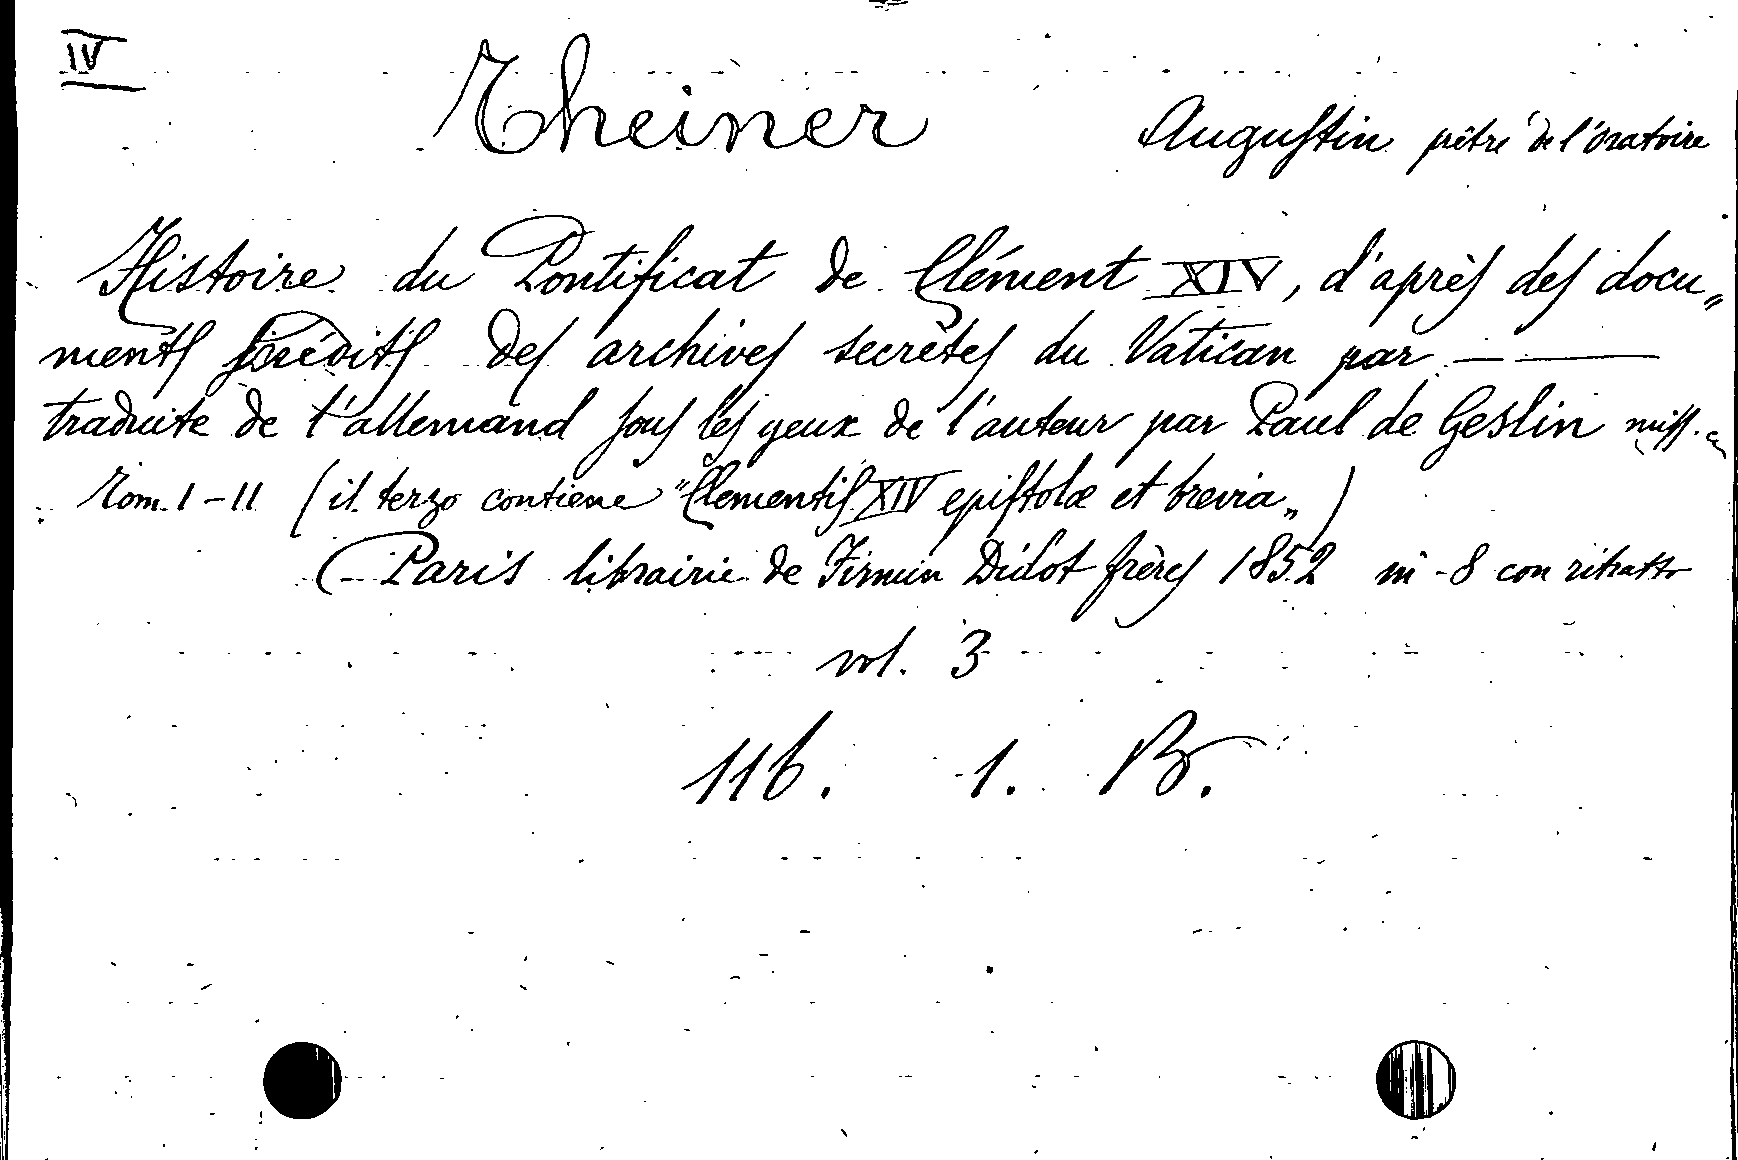 IV
Theiner Augustin prêtre de l'Oratoire
Histoire du Pontificat de Clément XIV, d'après des docu„
ments inédits des archives secrètes du Vatican par — ——
traduite de l'allemand sous les yeux de l'auteur par Paul de Geslin miss.
Tom. I-II (il terzo contiene "Clementis XIV epistolæ et brevia„)
(Paris librairie de Firmin Didot frères 1852 in-8 con ritratto
vol. 3
116. 1. B.